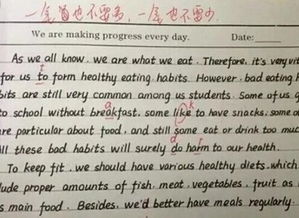 一层也不要多，一层也不要少.
We are making progress every day. Date:
As we all know, we are what we eat. Therefore, it's very vit
for us to form healthy eating habits. However, bad eating h
bits are still very common among us students. Some of us g
to school without breakfast, some like to have snacks, some a
are particular about food, and still some eat or drink too muc
ll these bad habits will surely do harm to our health.
To keep fit, we should have various healthy diets, which
lude proper amounts of fish, meat, vegetables, fruit as
s main food. Besides, we'd better have meals regularly